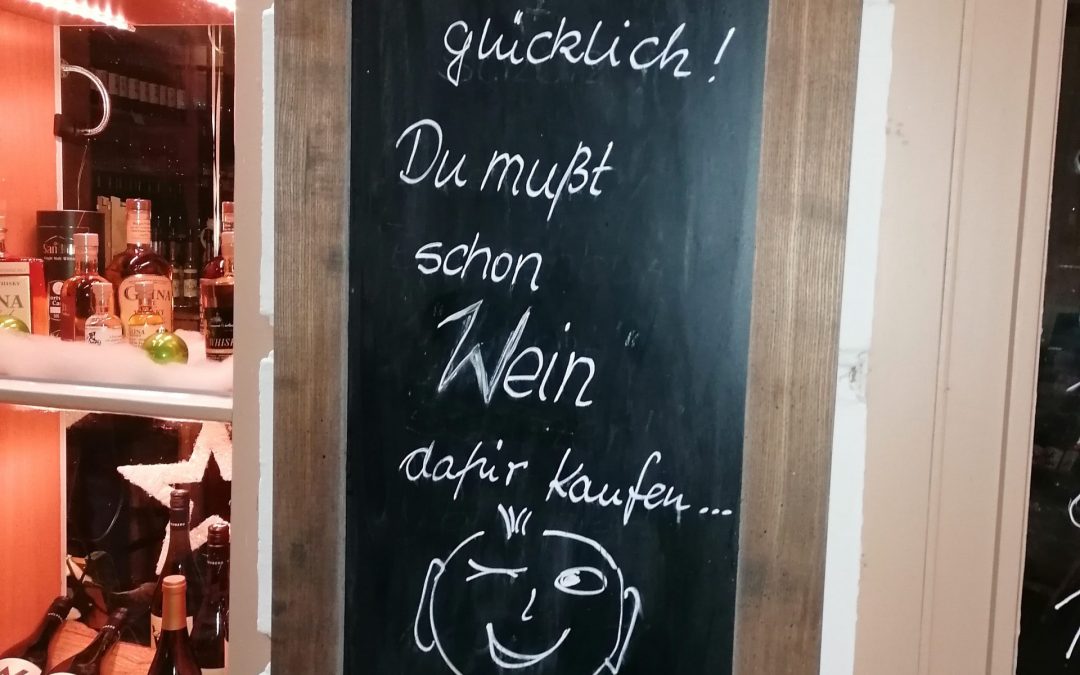 glücklich!
Du mußt
schon
Wein
dafür kaufen...
San
WHISKY
NA
GINA
WHISKY